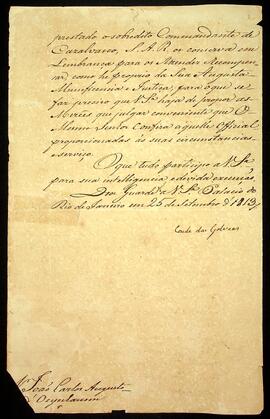 prestado o sobredito Commandante de
S. A. R. os conserva em
Lembrança para os Attender e recompen-
sar, como he proprio da Sua Augusta
Munificencia e Justiça, para o que se
faz preciso que V. S.ª haja de propor as
Mercês que julgar conveniente que O
Mesmo Senhor confira a aquelle Official
proporcionadas às suas circunstancias
e serviço.
O que tudo participo a V. S.ª
para sua intelligencia e devida execução.
Deos Guarde a V. S.ª Palacio do
Rio de Janeiro em 25 de Setembro d' 1813
Conde das Galveas
João Carlos Augusto
d' Oeynhausen